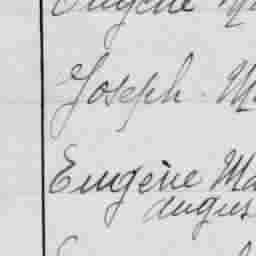 Eugène
Joseph. M
Eugène Ma
Augus